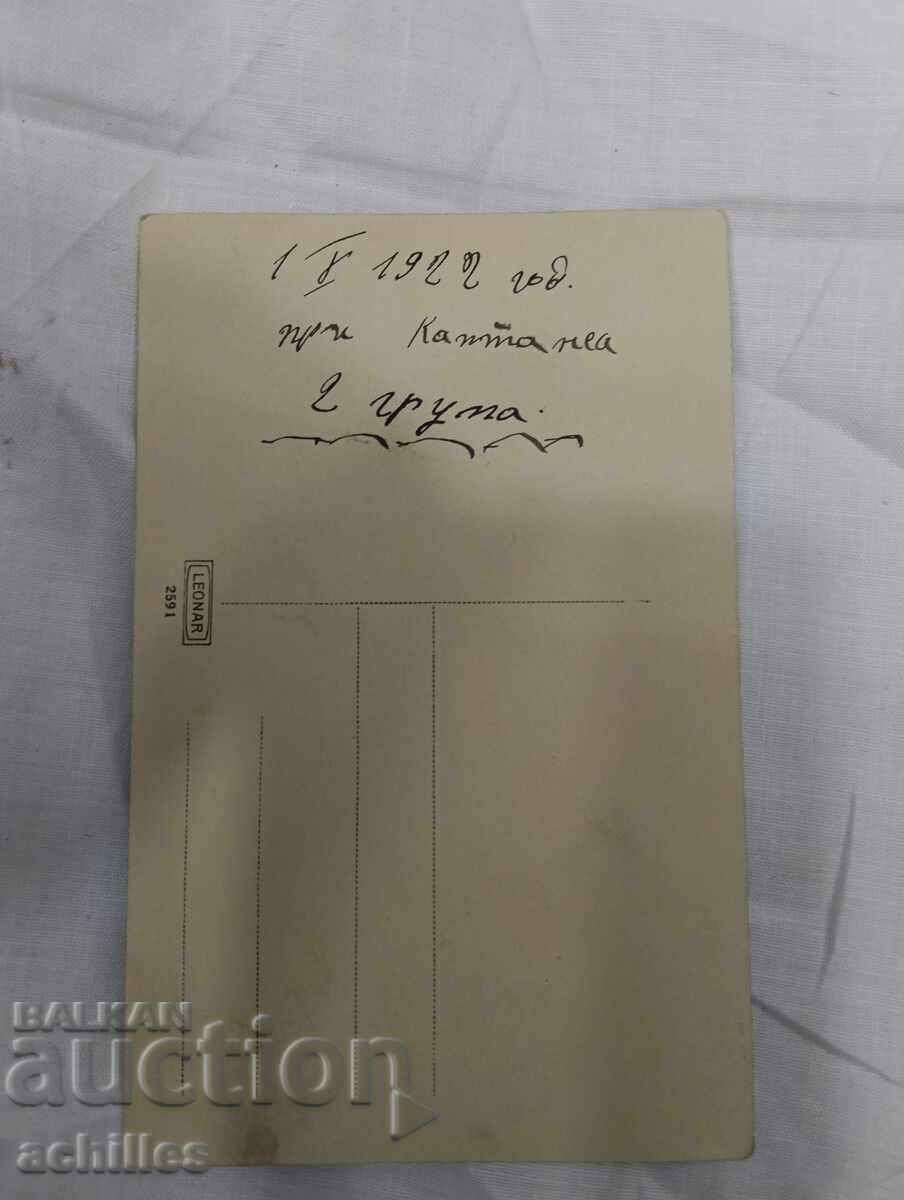 1 V 1922 год.
при
2 група.
LEONAR
2591
BALKAN
auction
achilles